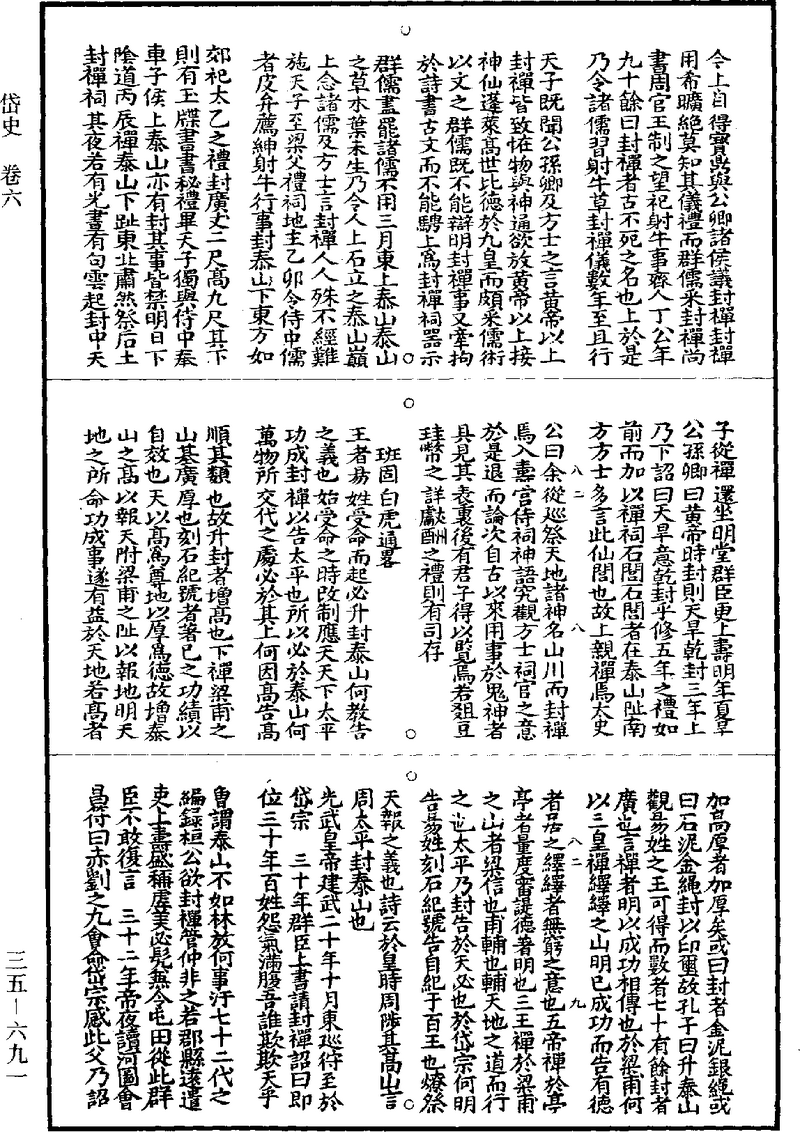 岱史 卷六
令上自得寶鼎與公卿諸侯議封禪封禪
用希曠絕莫知其儀禮而群儒采封禪尚
書周官王制之望祀射牛事齊人丁公年
九十餘曰封禪者古不死之名也上於是
乃令諸儒習射牛草封禪儀數年至且行
天子既聞公孫卿及方士之言黃帝以上
封禪皆致怪物與神通欲放黃帝以上接
神仙蓬萊高世比德於九皇而頗釆儒術
以文之群儒既不能辯明封禪事又牽拘
於詩書古文而不能騁上為封禪祠器示
群儒盡罷諸儒不用三月東上泰山泰山
之草木葉未生乃令人上石立之泰山巔
上念諸儒及方士言封禪人人殊不經難
施天子至梁父禮祠地主乙卯令侍中儒
者皮弁薦紳射牛行事封泰山下東方如
郊祀太乙之禮封廣丈二尺高九尺其下
則有玉牒書書秘禮畢天子獨與侍中奉
車子侯上泰山亦有封其事皆禁明日下
陰道丙辰禪泰山下趾東北肅然祭后土
封禪祠其夜若有光晝有句雲起封中天
子從禪還坐明堂群臣更上壽明年夏旱
公孫卿曰黃帝時封則天旱乾封三年上
乃下詔曰天旱意乾封乎修五年之禮如
前而加以禪祠石閭石閭者在泰山趾南
方方士多言此仙閭也故上親禪焉太史
公曰余從巡祭天地諸神名山川而封禪
焉入壽宮侍祠神語究觀方士祠官之意
於是退而論次自古以來用事於鬼神者
具見其表裏後有君子得以覽焉若俎豆
珪幣之詳獻酬之禮則有司存
班固白虎通畧
王者易姓受命而起必升封泰山何教告
之義也始受命之時改制應天天下太平
功成封禪以告太平也所以必於泰山何
萬物所交代之處必於其上何因高告高
順其類也故升封者增高也下禪梁甫之
山基廣厚也刻石紀號者著已之功績以
自效也天以高為尊地以厚為德故增泰
山之高以報天附梁甫之趾以報地明天
地之所命功成事遂有益於天地若高者
加高厚者加厚矣或曰封者金泥銀繩或
曰石泥金繩封以印璽故孔子曰升泰山
觀易姓之王可得而數者七十有餘封者
廣也言禪者明以成功相傳也於梁甫何
以三皇禪繹繹之山明已成功而告有德
者居之繹繹者無窮之意也五帝禪於亭
亭者量度審諟德著明也三王禪於梁甫
之山者梁信也甫輔也輔天地之道而行
之也太平乃封告於天必也於岱宗何明
告易姓刻石紀號告自紀于百王也燎祭
天報之義也詩云於皇時周陟其高山言
周太平封泰山也
光武皇帝建武二十年十月東巡狩至於
岱宗 三十年群臣上書請封禪詔曰即
位三十年百姓怨氣滿腹吾誰欺欺天乎
曾謂泰山不如林放何事汙七十二代之
編錄桓公欲封禪管仲非之若郡縣遠遣
吏上壽盛稱虛美必髡無令屯田從此群
臣不敢復言 三十二年帝夜讀河圖會
昌符曰赤劉之九會命岱宗感此父乃詔
八二
八
八二
九
三五—六九一